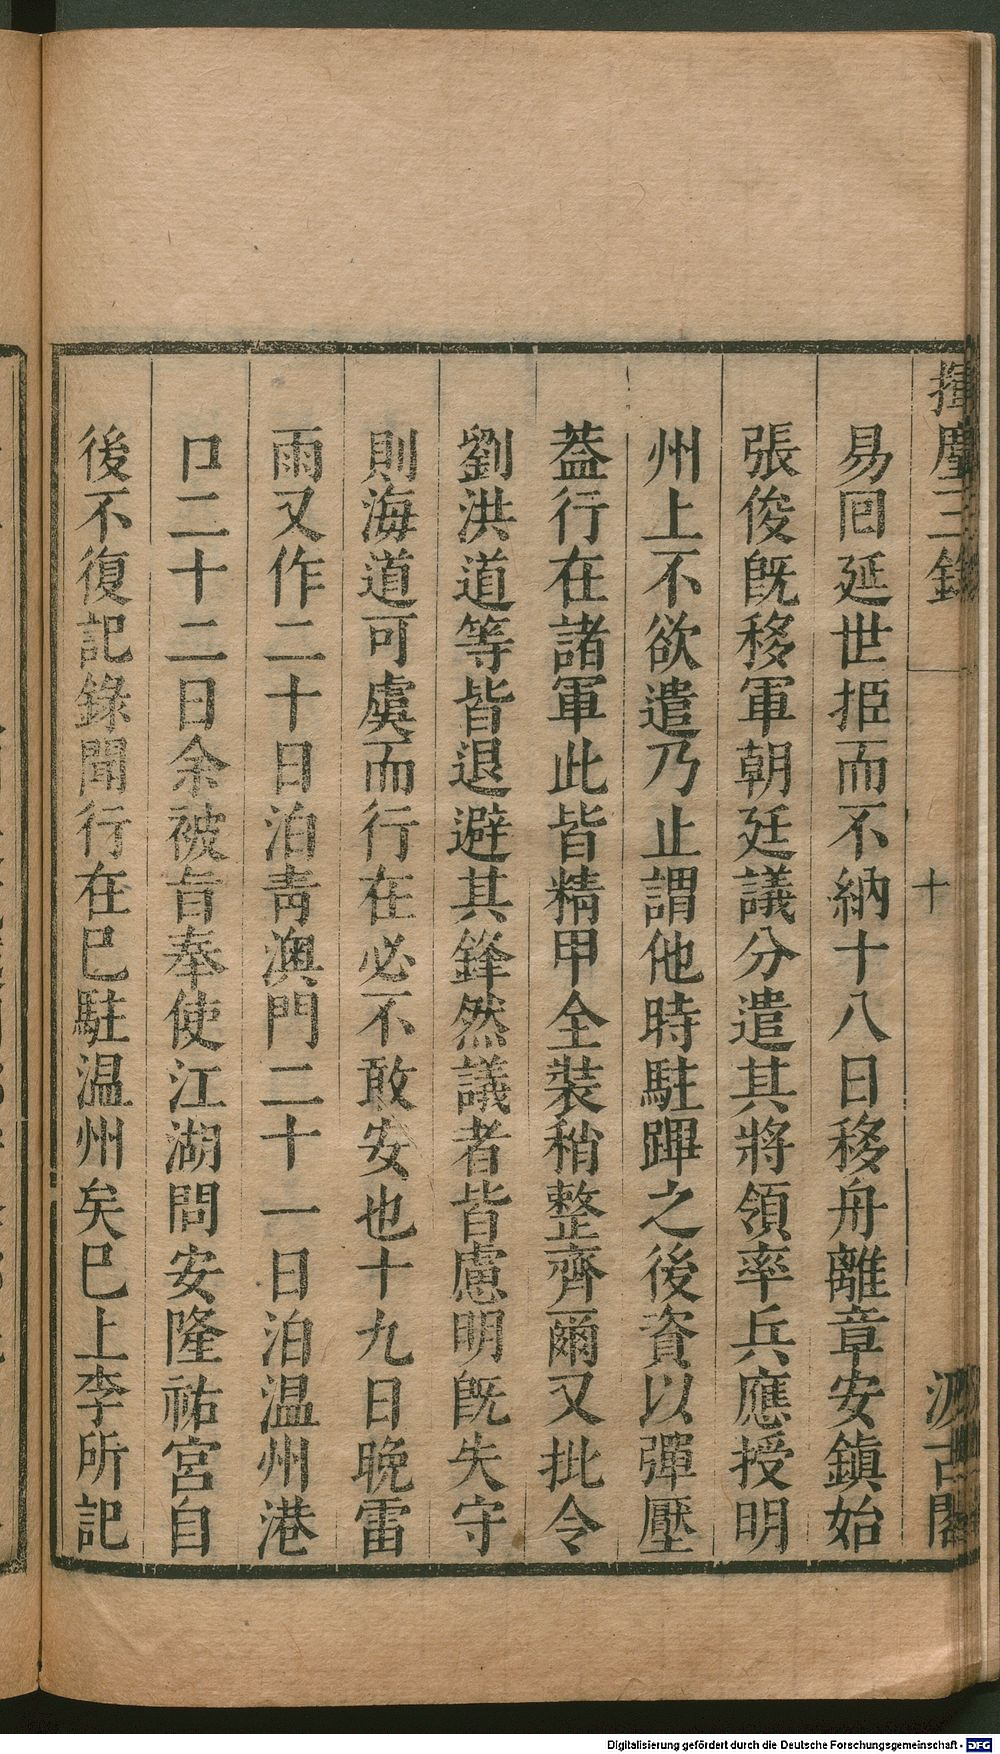 揮麈三錄
十
汲古閣
易囘延世拒而不納十八日移舟離章安鎮始
張俊旣移軍朝廷議分遣其將領率兵應授明
州上不欲遣乃止謂他時駐蹕之後資以彈壓
葢行在諸軍此皆精甲全裝稍整齊爾又批令
劉洪道等皆退避其鋒然議者皆慮明旣失守
則海道可虞而行在必不敢安也十九日晚雷
雨又作二十日泊靑澳門二十一日泊温州港
口二十二日余被旨奉使江湖問安隆祐宮自
後不復記錄聞行在巳駐温州矣巳上李所記
Digitalisierung gefördert durch die Deutsche Forschungsgemeinschaft - DFG